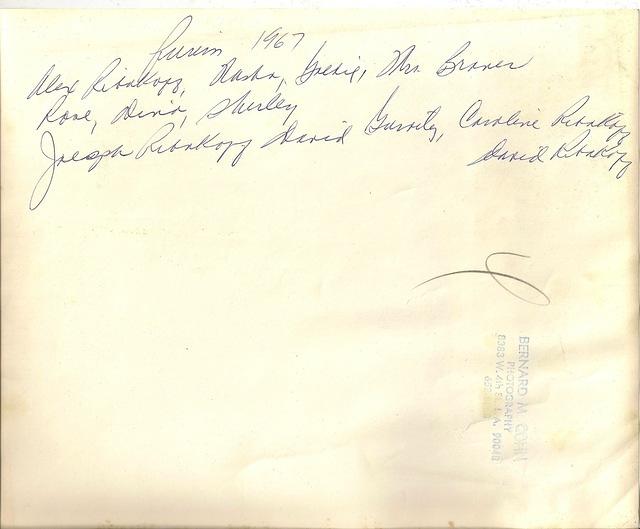 Purim 1967
Alex Ribakoff, Masha, Goldie, Mrs Braver
Rose, Dina, Shirley
Joseph Ribakoff David Gurvitz, Caroline Ribakoff
David Ribakoff
BERNARD M. COHN
PHOTOGRAPHY
8383 W. 4th St. L.A. 90048